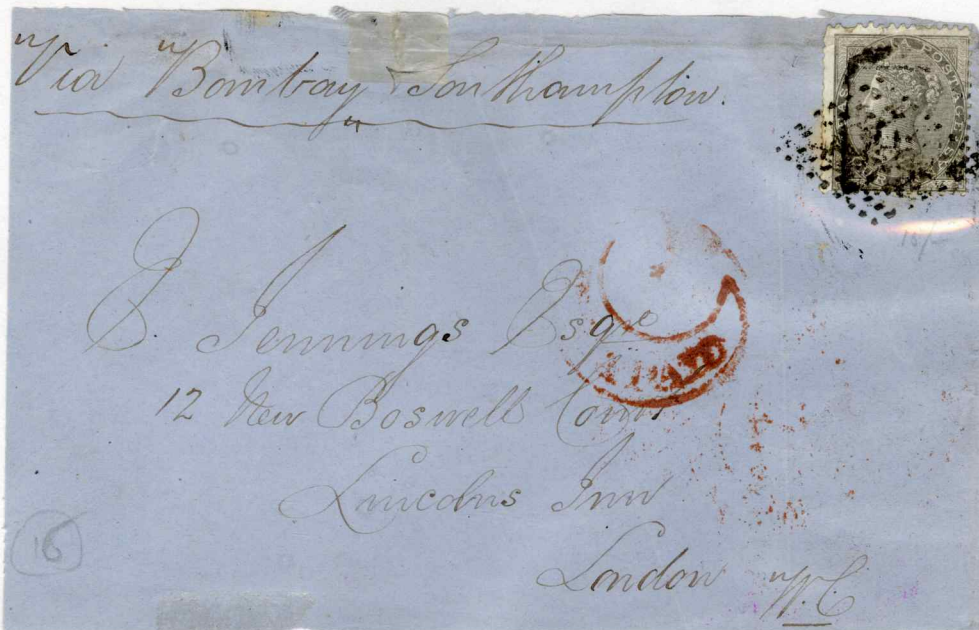 "Via "Bombay & Southampton.
J. Jennings Esqre
12 New Boswell Court
Lincolns Inn
London W.C
PAID
16